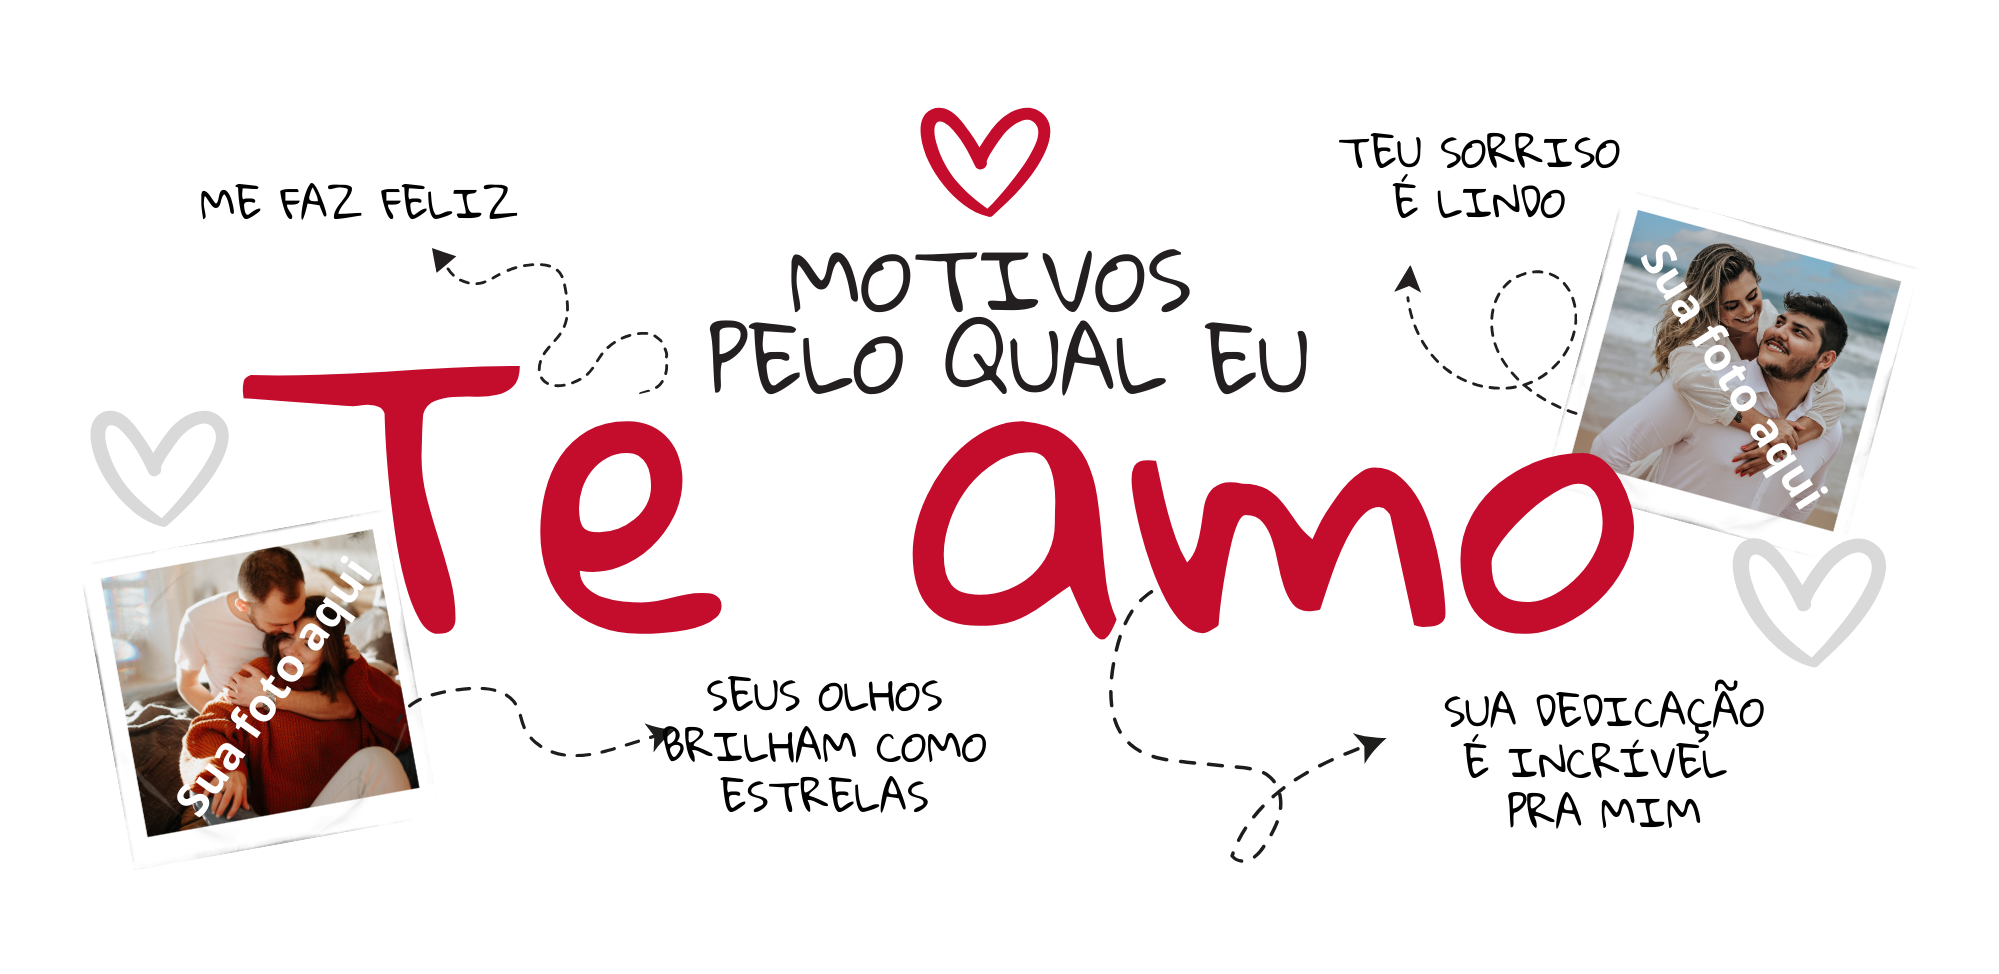 ME FAZ FELIZ
MOTIVOS
PELO QUAL EU
Te amo
TEU SORRISO
É LINDO
Sua foto aqui
Sua foto aqui
SEUS OLHOS
BRILHAM COMO
ESTRELAS
SUA DEDICAÇÃO
É INCRÍVEL
PRA MIM